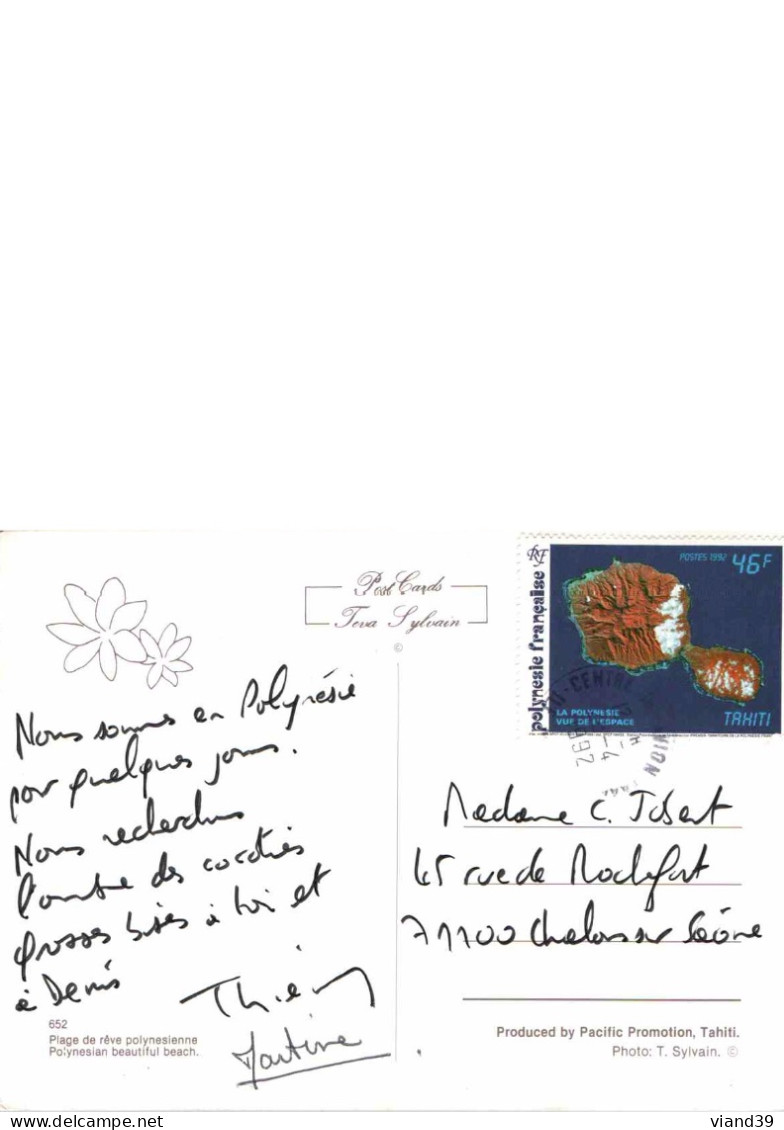 Post Cards
Teva Sylvain
©
RF
POSTES 1992 46F
polynésie française
LA POLYNESIE
VUE DE L'ESPACE
TAHITI
Nous sommes en Polynésie
pour quelques jours.
Nous recherchons
l'ombre des cocotiers
grosses bises à toi et
à Denis
Thierry
Martine
Madame C. Jobert
45 rue de Rochefort
71100 Chalon sur Saône
652
Plage de rêve polynesienne
Polynesian beautiful beach.
Produced by Pacific Promotion, Tahiti.
Photo: T. Sylvain. ©
www.delcampe.net
viand39